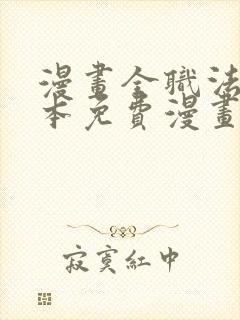 漫畫全職法
本免費漫畫
寂寞紅中